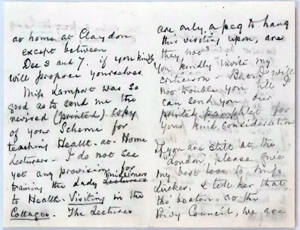 at home at Claydon,
except between
Dec 3 and 7. if you kindly
will propose yourselves
Miss Lamport was so
good as to send me the
revised (printed) Copy
of your Scheme for
teaching Health-at-Home
Lecturers. I do not see
yet any provision for
training the Lady Missioners
to Health-Visiting in the
Cottages. The Lectures
are only a peg to hang
this visiting upon, are
they not?
You kindly invite my
criticism. But I will
not trouble you till I
can send you
printed pamphlet for
your kind consideration
If you are still at the
London, please give
my best love to Miss
Lückes. I tell her that
the Doctors at the
Privy Council, we are